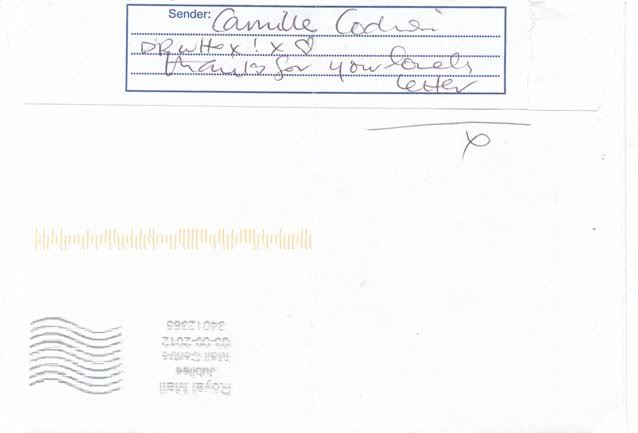 Sender: Camille Coduri
DR WHO x ! x ♡
thanks for your lovely
letter
x
Royal Mail
Jubilee
Mail Centre
34012365